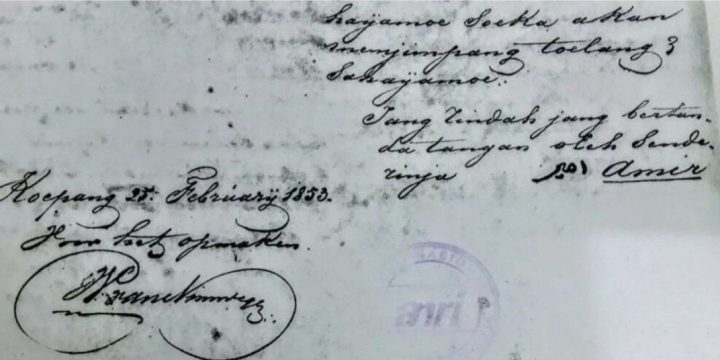 hajamoe Soeka akan
menjimpang toelang 3
Sahajamoe.
Jang Tindah jang bertan-
da tangan oleh Sende-
rinja امير Amir
Koepang 25. Februarij 1853.
Voor het opmaken.
ARSIP
anri